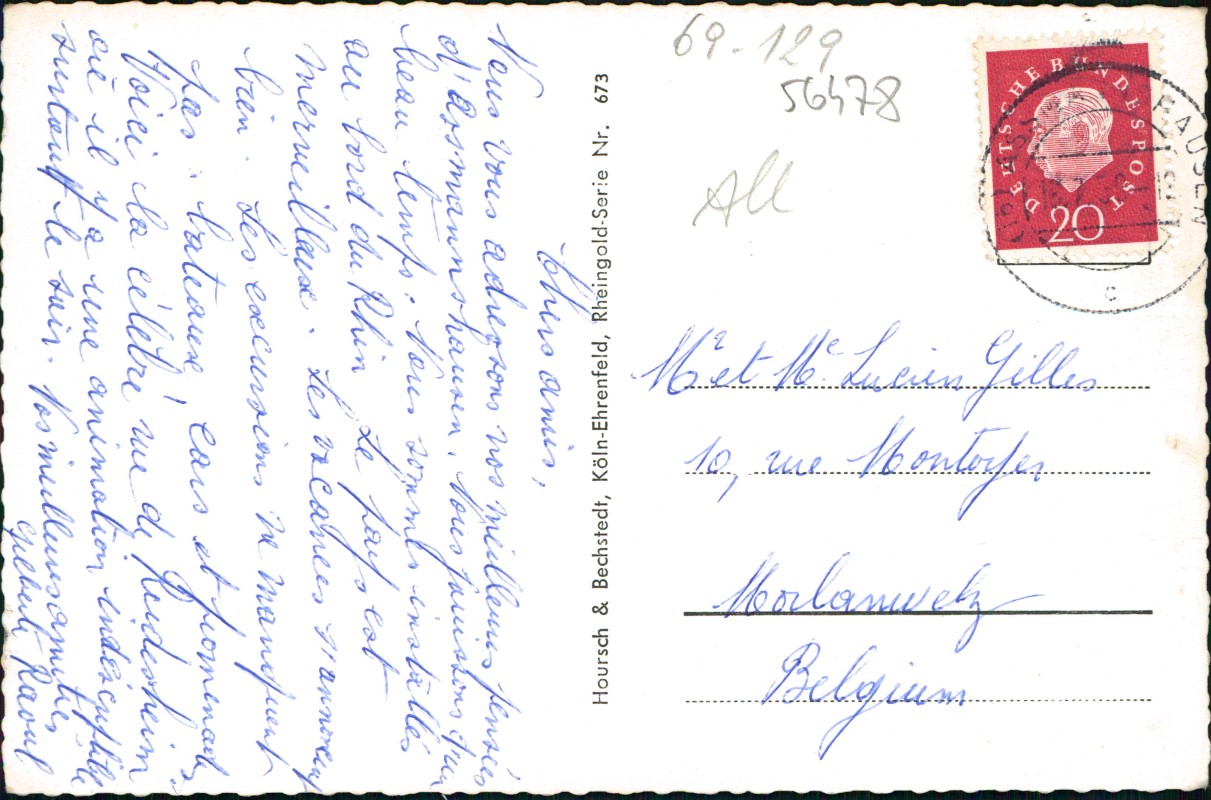 Chers amis,
Nous vous adressons nos meilleures pensées
d'Assmannshausen. Nous jouissons d'un
beau temps. Nous sommes installés
au bord du Rhin. Le pays est
merveilleux. Les vacances s'annoncent
bien. Les excursions ne manquent
pas : bateaux, cars et promenades
Voici la célèbre rue de Rudesheim
où il y a une animation indescriptible
surtout le soir. Nos meilleures amitiés
Raoul
Hoursch & Bechstedt, Köln-Ehrenfeld, Rheingold-Serie Nr. 673
69-129
56478
All
DEUTSCHE BUNDESPOST
20
HAUSEN
c
Mr et Me Lucien Gilles
10, rue Montoyer
Morlanwelz
Belgium